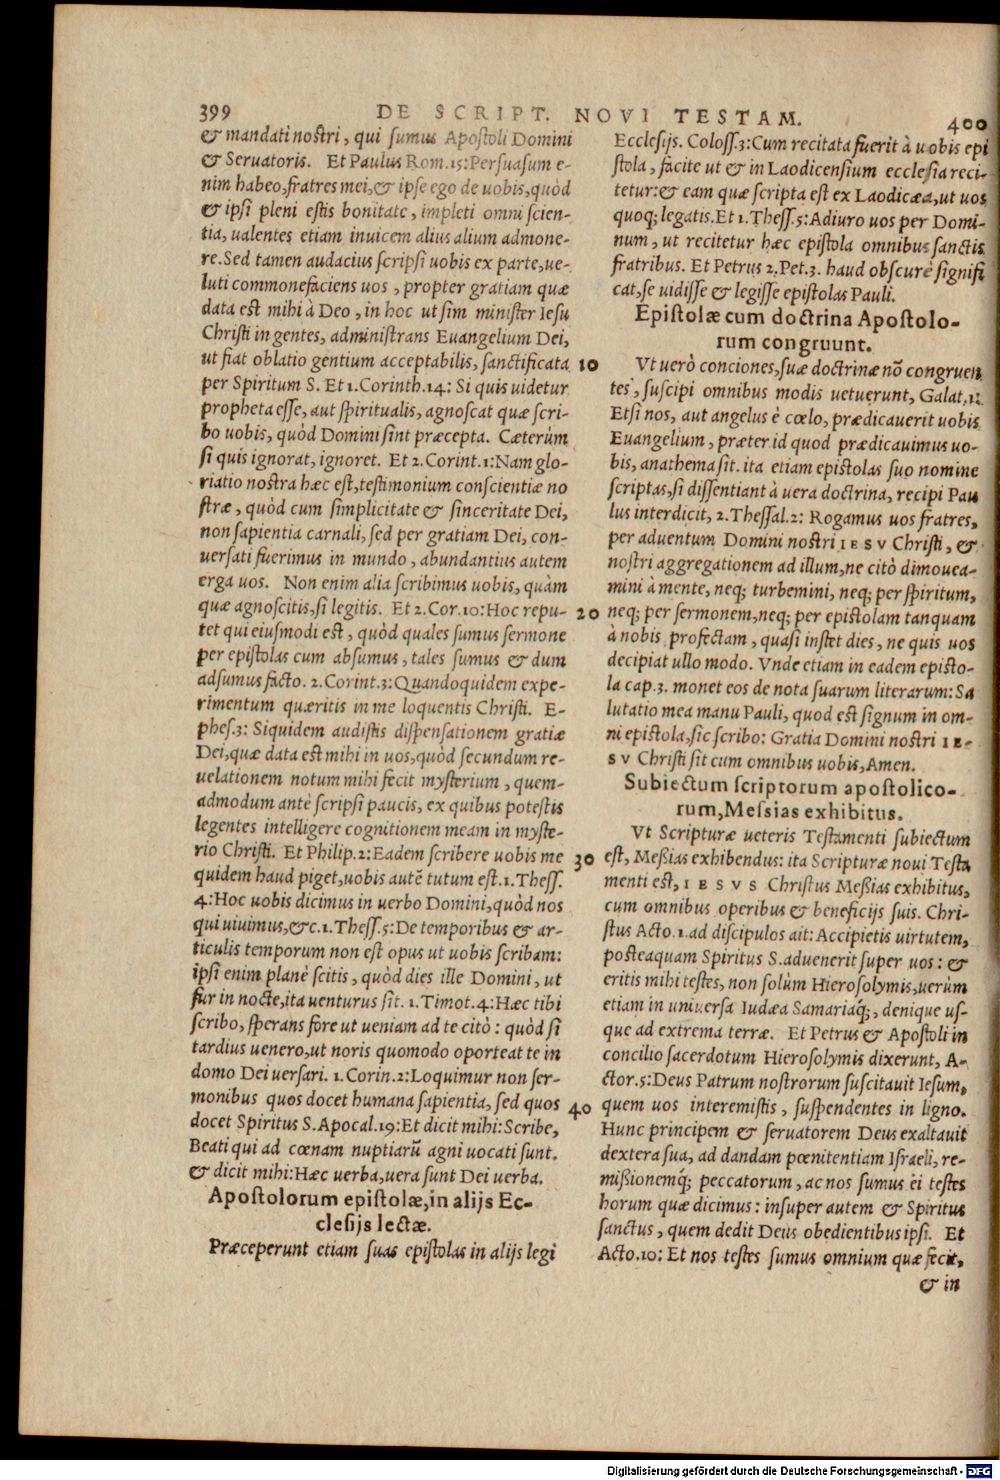 399 DE SCRIPT. NOVI TESTAM. 400
& mandati nostri, qui sumus Apostoli Domini
& Seruatoris. Et Paulus Rom. 15: Persuasum e-
nim habeo, fratres mei, & ipse ego de uobis, quòd
& ipsi pleni estis bonitate, impleti omni scien-
tia, ualentes etiam inuicem alius alium admone-
re. Sed tamen audacius scripsi uobis ex parte, ue-
luti commonefaciens uos, propter gratiam quæ
data est mihi à Deo, in hoc ut sim minister Iesu
Christi in gentes, administrans Euangelium Dei,
ut fiat oblatio gentium acceptabilis, sanctificata 10
per Spiritum S. Et 1. Corinth. 14: Si quis uidetur
propheta esse, aut spiritualis, agnoscat quæ scri-
bo uobis, quòd Domini sint præcepta. Cæterùm
si quis ignorat, ignoret. Et 2. Corint. 1: Nam glo-
riatio nostra hæc est, testimonium conscientiæ no
stræ, quòd cum simplicitate & sinceritate Dei,
non sapientia carnali, sed per gratiam Dei, con-
uersati fuerimus in mundo, abundantius autem
erga uos. Non enim alia scribimus uobis, quàm
quæ agnoscitis, si legitis. Et 2. Cor. 10: Hoc repu- 20
tet qui eiusmodi est, quòd quales sumus sermone
per epistolas cum absumus, tales sumus & dum
adsumus facto. 2. Corint. 3: Quandoquidem expe-
rimentum quæritis in me loquentis Christi. E-
phes. 3: Siquidem audistis dispensationem gratiæ
Dei, quæ data est mihi in uos, quòd secundum re-
uelationem notum mihi fecit mysterium, quem-
admodum antè scripsi paucis, ex quibus potestis
legentes intelligere cognitionem meam in myste-
rio Christi. Et Philip. 2: Eadem scribere uobis me 30
quidem haud piget, uobis autē tutum est. 1. Thess.
4: Hoc uobis dicimus in uerbo Domini, quòd nos
qui uiuimus, &c. 1. Thess. 5: De temporibus & ar-
ticulis temporum non est opus ut uobis scribam:
ipsi enim planè scitis, quòd dies ille Domini, ut
fur in nocte, ita uenturus sit. 1. Timot. 4: Hæc tibi
scribo, sperans fore ut ueniam ad te citò: quòd si
tardius uenero, ut noris quomodo oporteat te in
domo Dei uersari. 1. Corin. 2: Loquimur non ser-
monibus quos docet humana sapientia, sed quos 40
docet Spiritus S. Apocal. 19: Et dicit mihi: Scribe,
Beati qui ad cœnam nuptiarū agni uocati sunt.
& dicit mihi: Hæc uerba, uera sunt Dei uerba.
Apostolorum epistolæ, in alijs Ec-
clesijs lectæ.
Præceperunt etiam suas epistolas in alijs legi
Ecclesijs. Coloss. 3: Cum recitata fuerit à uobis epi
stola, facite ut & in Laodicensium ecclesia reci-
tetur: & eam quæ scripta est ex Laodicæa, ut uos
quoq; legatis. Et 1. Thess. 5: Adiuro uos per Domi-
num, ut recitetur hæc epistola omnibus sanctis
fratribus. Et Petrus 2. Pet. 3. haud obscurè signifi
cat, se uidisse & legisse epistolas Pauli.
Epistolæ cum doctrina Apostolo-
rum congruunt.
Vt uerò conciones, suæ doctrinæ nō congruen
tes, suscipi omnibus modis uetuerunt, Galat. 1:
Etsi nos, aut angelus è cœlo, prædicauerit uobis
Euangelium, præter id quod prædicauimus uo-
bis, anathema sit. ita etiam epistolas suo nomine
scriptas, si dissentiant à uera doctrina, recipi Pau
lus interdicit, 2. Thessal. 2: Rogamus uos fratres,
per aduentum Domini nostri IESV Christi, &
nostri aggregationem ad illum, ne citò dimouea-
mini à mente, neq; turbemini, neq; per spiritum,
neq; per sermonem, neq; per epistolam tanquam
à nobis profectam, quasi instet dies, ne quis uos
decipiat ullo modo. Vnde etiam in eadem episto-
la cap. 3. monet eos de nota suarum literarum: Sa
lutatio mea manu Pauli, quod est signum in om-
ni epistola, sic scribo: Gratia Domini nostri IE-
SV Christi sit cum omnibus uobis, Amen.
Subiectum scriptorum apostolico-
rum, Messias exhibitus.
Vt Scripturæ ueteris Testamenti subiectum
est, Meßias exhibendus: ita Scripturæ noui Testa
menti est, IESVS Christus Meßias exhibitus,
cum omnibus operibus & beneficijs suis. Chri-
stus Acto. 1. ad discipulos ait: Accipietis uirtutem,
posteaquam Spiritus S. aduenerit super uos: &
eritis mihi testes, non solùm Hierosolymis, uerùm
etiam in uniuersa Iudæa Samariaq́;, denique us-
que ad extrema terræ. Et Petrus & Apostoli in
concilio sacerdotum Hierosolymis dixerunt, A-
ctor. 5: Deus Patrum nostrorum suscitauit Iesum,
quem uos interemistis, suspendentes in ligno.
Hunc principem & seruatorem Deus exaltauit
dextera sua, ad dandam pœnitentiam Israeli, re-
mißionemq́; peccatorum, ac nos sumus ei testes
horum quæ dicimus: insuper autem & Spiritus
sanctus, quem dedit Deus obedientibus ipsi. Et
Acto. 10: Et nos testes sumus omnium quæ fecit,
& in
Digitalisierung gefördert durch die Deutsche Forschungsgemeinschaft - DFG